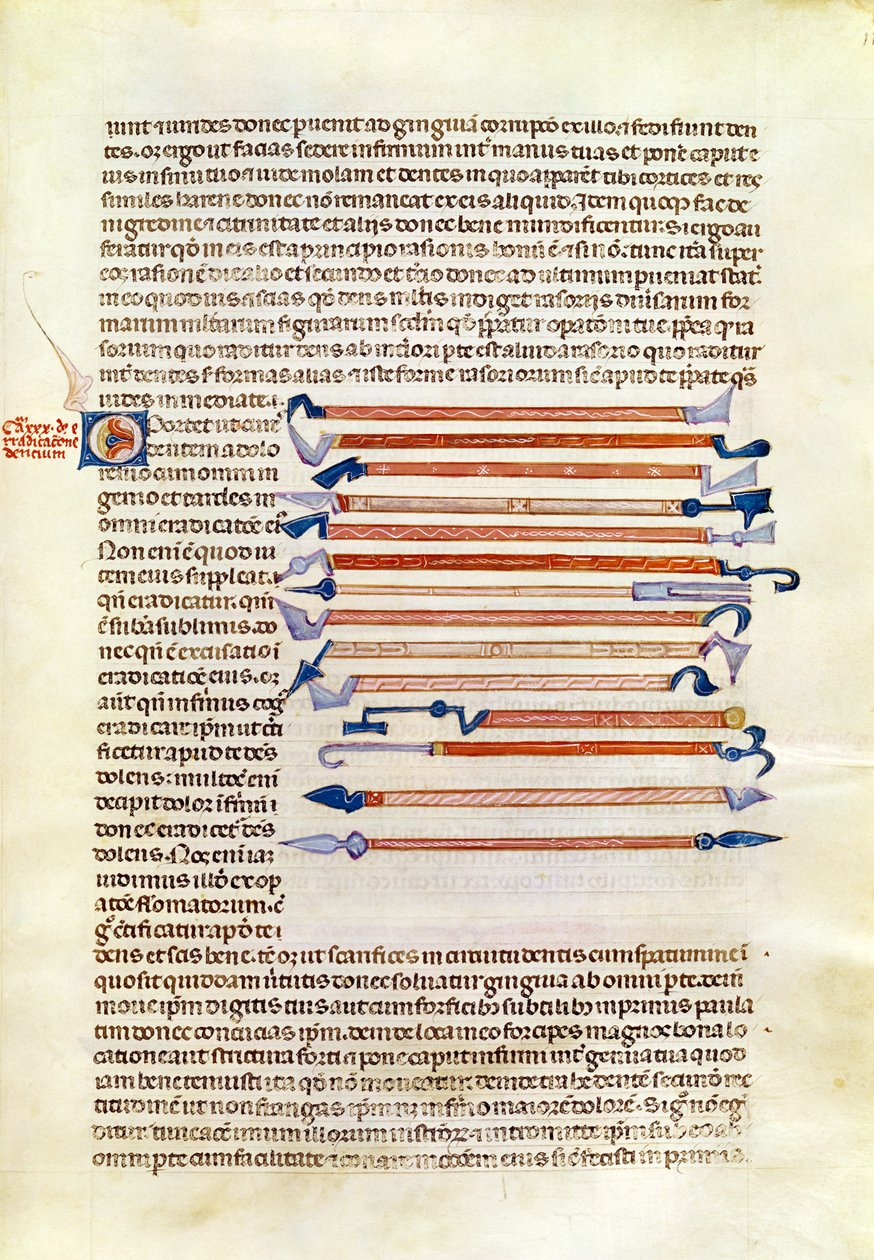 iunt ⁊ uirides donec puenit ad gingiuā corruptō ex illo. ⁊ fedi fiunt den
tes. oꝫ ergo ut facias sedere infirmum int̄ manus tuas et pone caput e
ius in sinu tuo ⁊ rade molam et dentes in quo apparēt tibi cortices et res
similes harene donec nō remaneat ex eis aliquid. Item quoqꝫ fac de
nigredine ⁊ citrinitate et alijs donec bene mundificentur. Si ergo au
feratur qđ in eis est a principio rasionis bonū ē. ⁊ si nō. tunc itera super
eos rasionē die alio et secundo et t̄cio donec ad ultimum pueniat
in eo quod uis. ⁊ scias qđ dens indiget rasorijs diu̓sarum for
marum multarum figurarum scđm qđ p̄paratur opatōni tue. ppea qr̄ ra
sorium quo raditur dens ab int̓iori pte est aliud a rasorio quo raditur
int̄ dentes formas alias. ⁊ iste forme rasoriorum sint apud te p̄parate qs̄
uides in mediate.
Ca. xxx. de e
rradicatione
dencium
Oportet ut cures
dentem a dolo
re suo cum omni in
genio et tardes in
omni eradicatōe ei
Non enī ē quod iu
tem eius suppleat.
qn̄ eradicatur. qm̄
ē sub̄a sublimis. do
nec qn̄ ē excusatio ī
eradicatiōe eius. oꝫ
aūt qn̄ infirmus cog̓
eradicare ip̄m ut c̓ti
ficetur apud te dēs
dolens. multotiē enī
decipit dolor īfirmū
donec eradicet̓ dēs
dolens. Nos enī iā
uidimus illō ex op
atōe fleomatorum.
g̓ c̓tificatur apō te
dens et scis bene. tē oꝫ ut scarifices in circuitu dentis cum spatumine ī
quo sit quiddam uirtutis donec soluatur gingiua ab omni pte. dein̄
moue ip̄m digitis tuis aut cum forficibꝫ subtilibꝫ in primis paula
tim donec concucias ip̄m. deinde loca in eo forcipes magnos bona lo
catione aut strictura forti ⁊ pone caput infirmi int̄ genua tua quod
iam bene tenuisti ita qđ nō moueatur. deinde trahe dentē secundō rec
titudinē ut non frangas ip̄m infirmo maiorē dolorē. Si g̓ nō eg̓
ditur tunc accipe unum illorum ⁊ intromitte ip̄m sub eo ab
omni pte cum facilitate ⁊ conare motōem eius sic̄ fecisti in primis.